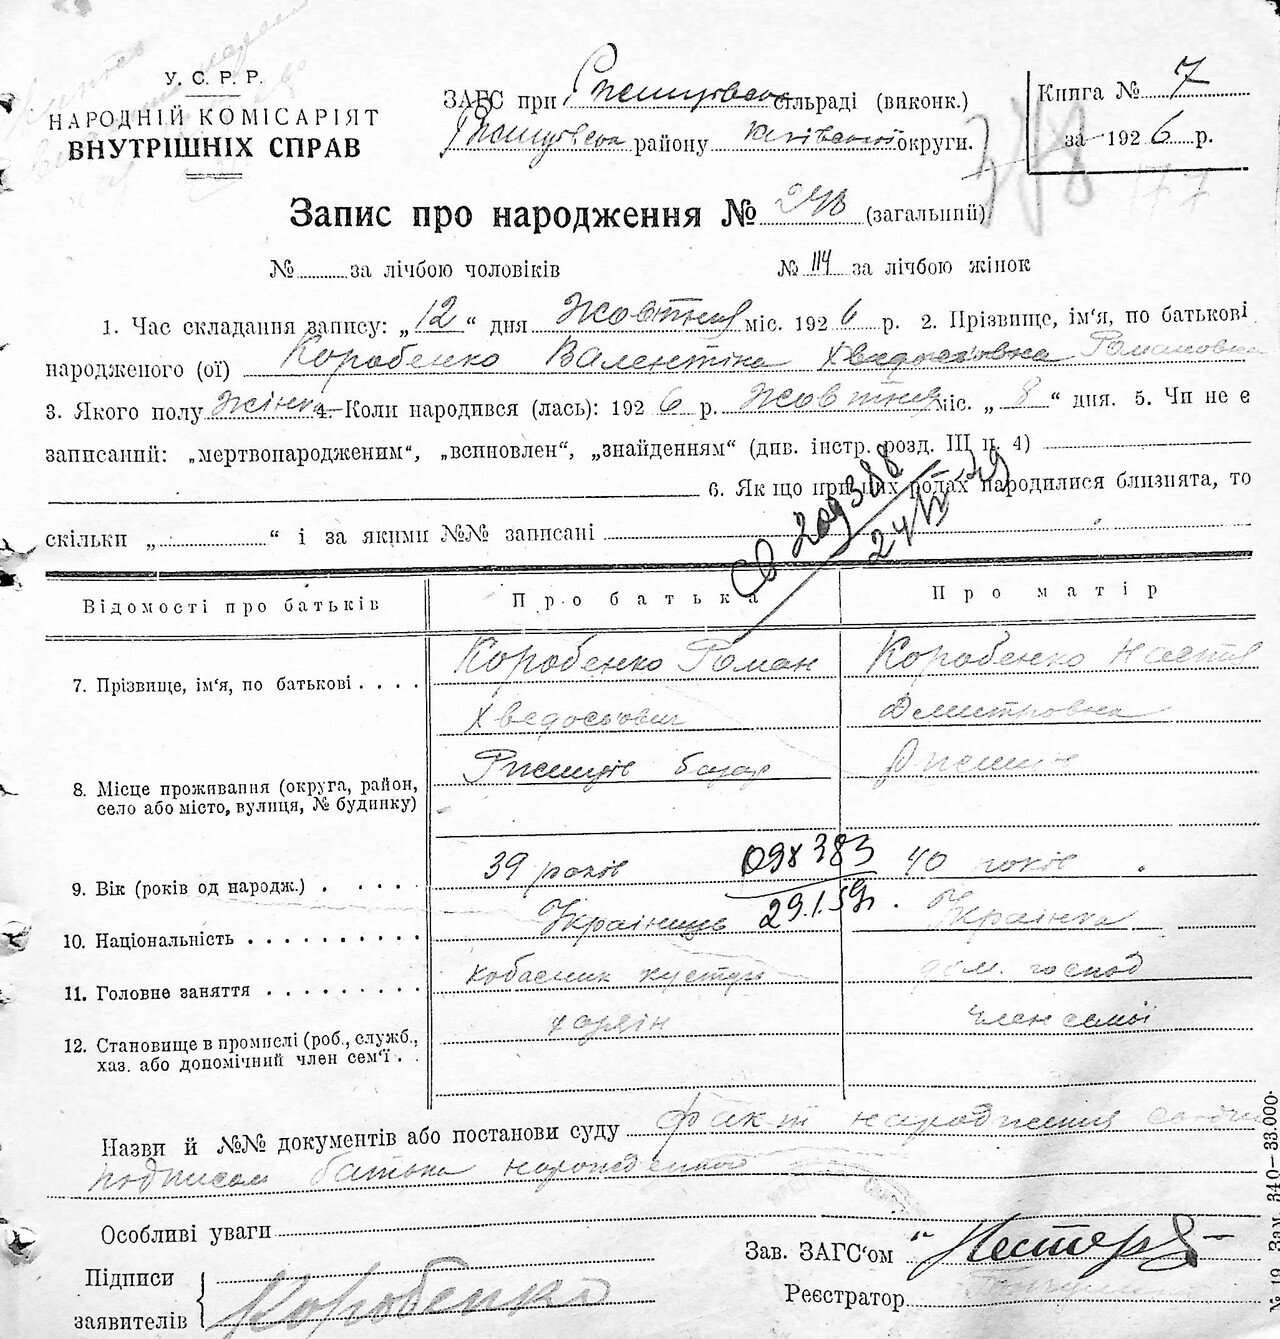 У. С. Р. Р.
НАРОДНІЙ КОМІСАРІЯТ
ВНУТРІШНІХ СПРАВ
ЗАГС при сільраді (виконк.)
району округи.
Книга № 7
за 1926 р.
378
177
Запис про народження № 248 (загальний)
№ за лічбою чоловіків
№ 114 за лічбою жінок
1. Час складання запису: „12“ дня Жовтня міс. 1926 р. 2. Прізвище, ім'я, по батькові
народженого (ої) Коробенко Валентіна Хведосіовна Романовна
3. Якого полу Жінка 4. Коли народився (лась): 1926 р. Жовтня міс. „8“ дня. 5. Чи не є
записаний: „мертвонародженим“, „всиновлен“, „знайденням“ (див. інстр. розд. III ц. 4)
6. Як що при цих родах народилися близнята, то
скільки „ “ і за якими №№ записані
Відомості про батьків
Про батька
Про матір
7. Прізвище, ім'я, по батькові
Коробенко Роман
Хведосіович
Коробенко Настя
Дмитровна
8. Місце проживання (округа, район,
село або місто, вулиця, № будинку)
Ржищів базар
9. Вік (років од народж.)
39 років
40 років
098383
29.I.59г.
10. Національність
Українець
Українка
11. Головне заняття
кобасник кустар
дом. господ
12. Становище в промислі (роб., служб.,
хаз. або допомічний член сем'ї
член семьї
Назви й №№ документів або постанови суду факт народження
подписом батька
Особливі уваги
Підписи
заявителів
Коробенко
Зав. ЗАГС'ом
Реєстратор
340—33.000.